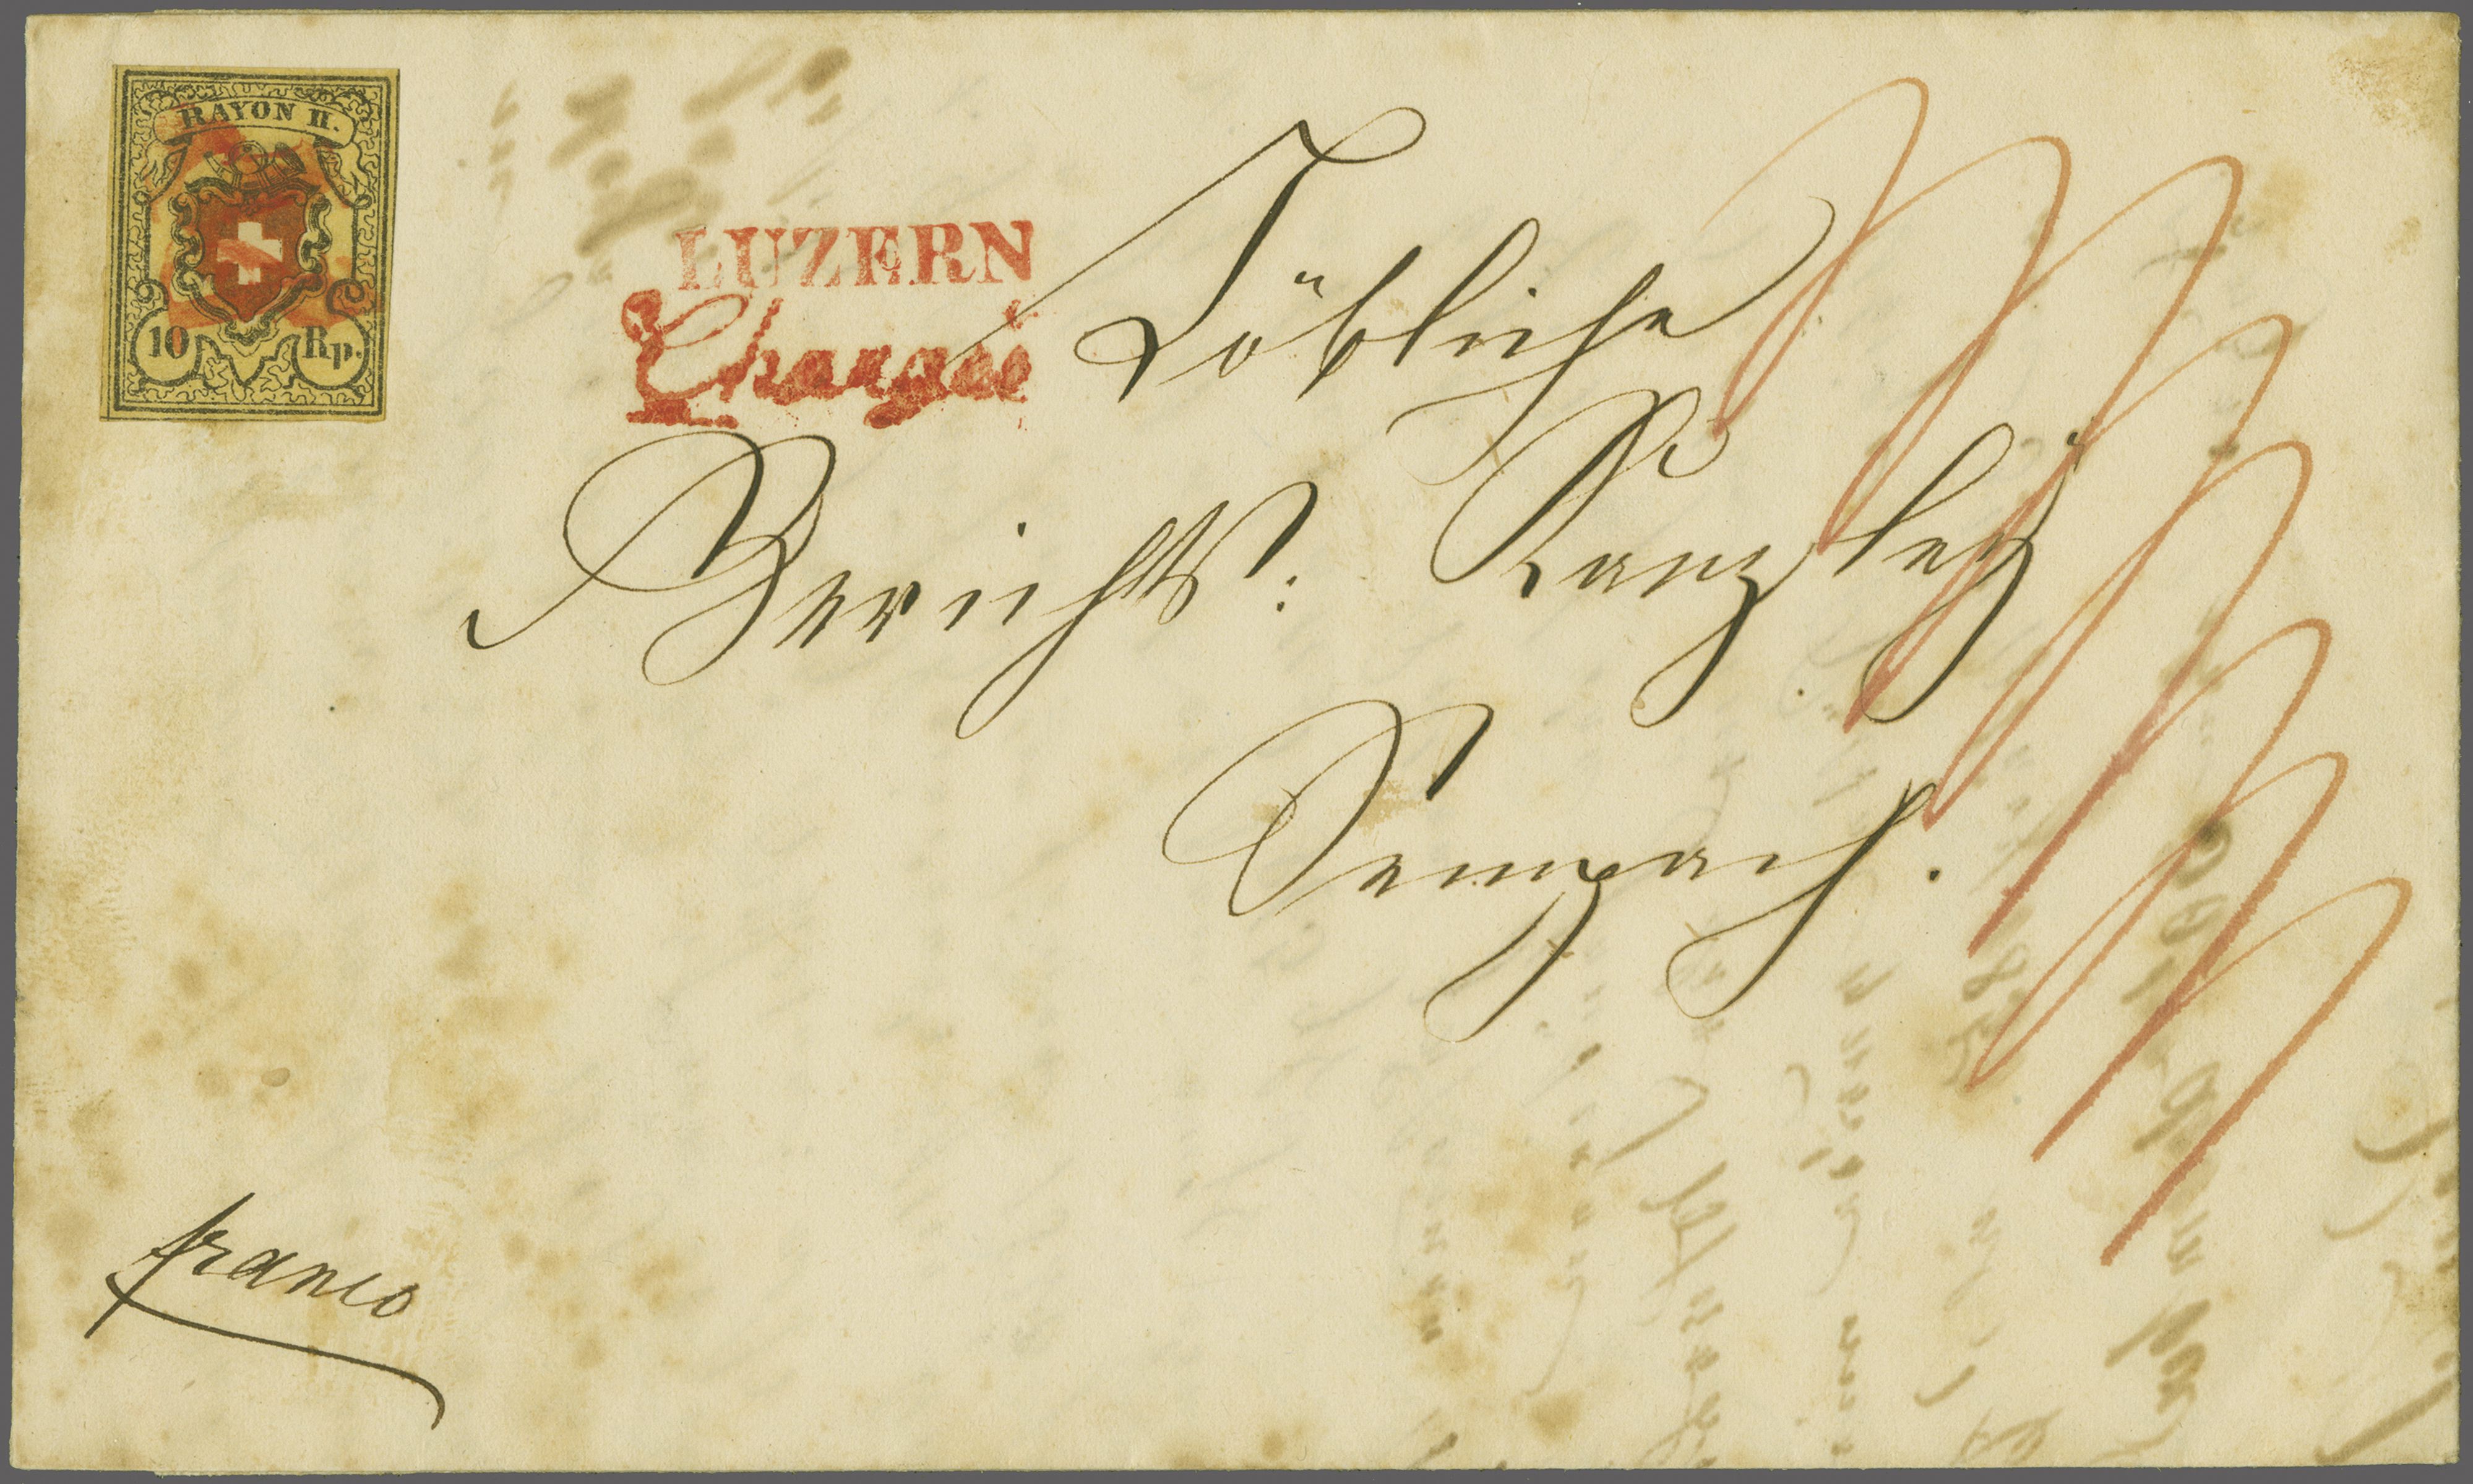 RAYON II.
10 Rp.
LUZERN
Chargée
Löbliche
Gerichts: Kanzley
Sempach.
franco